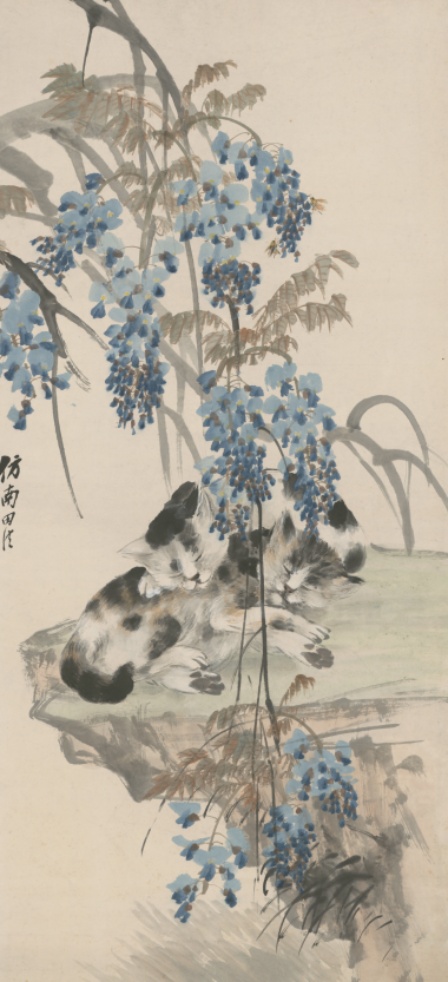 仿南田法